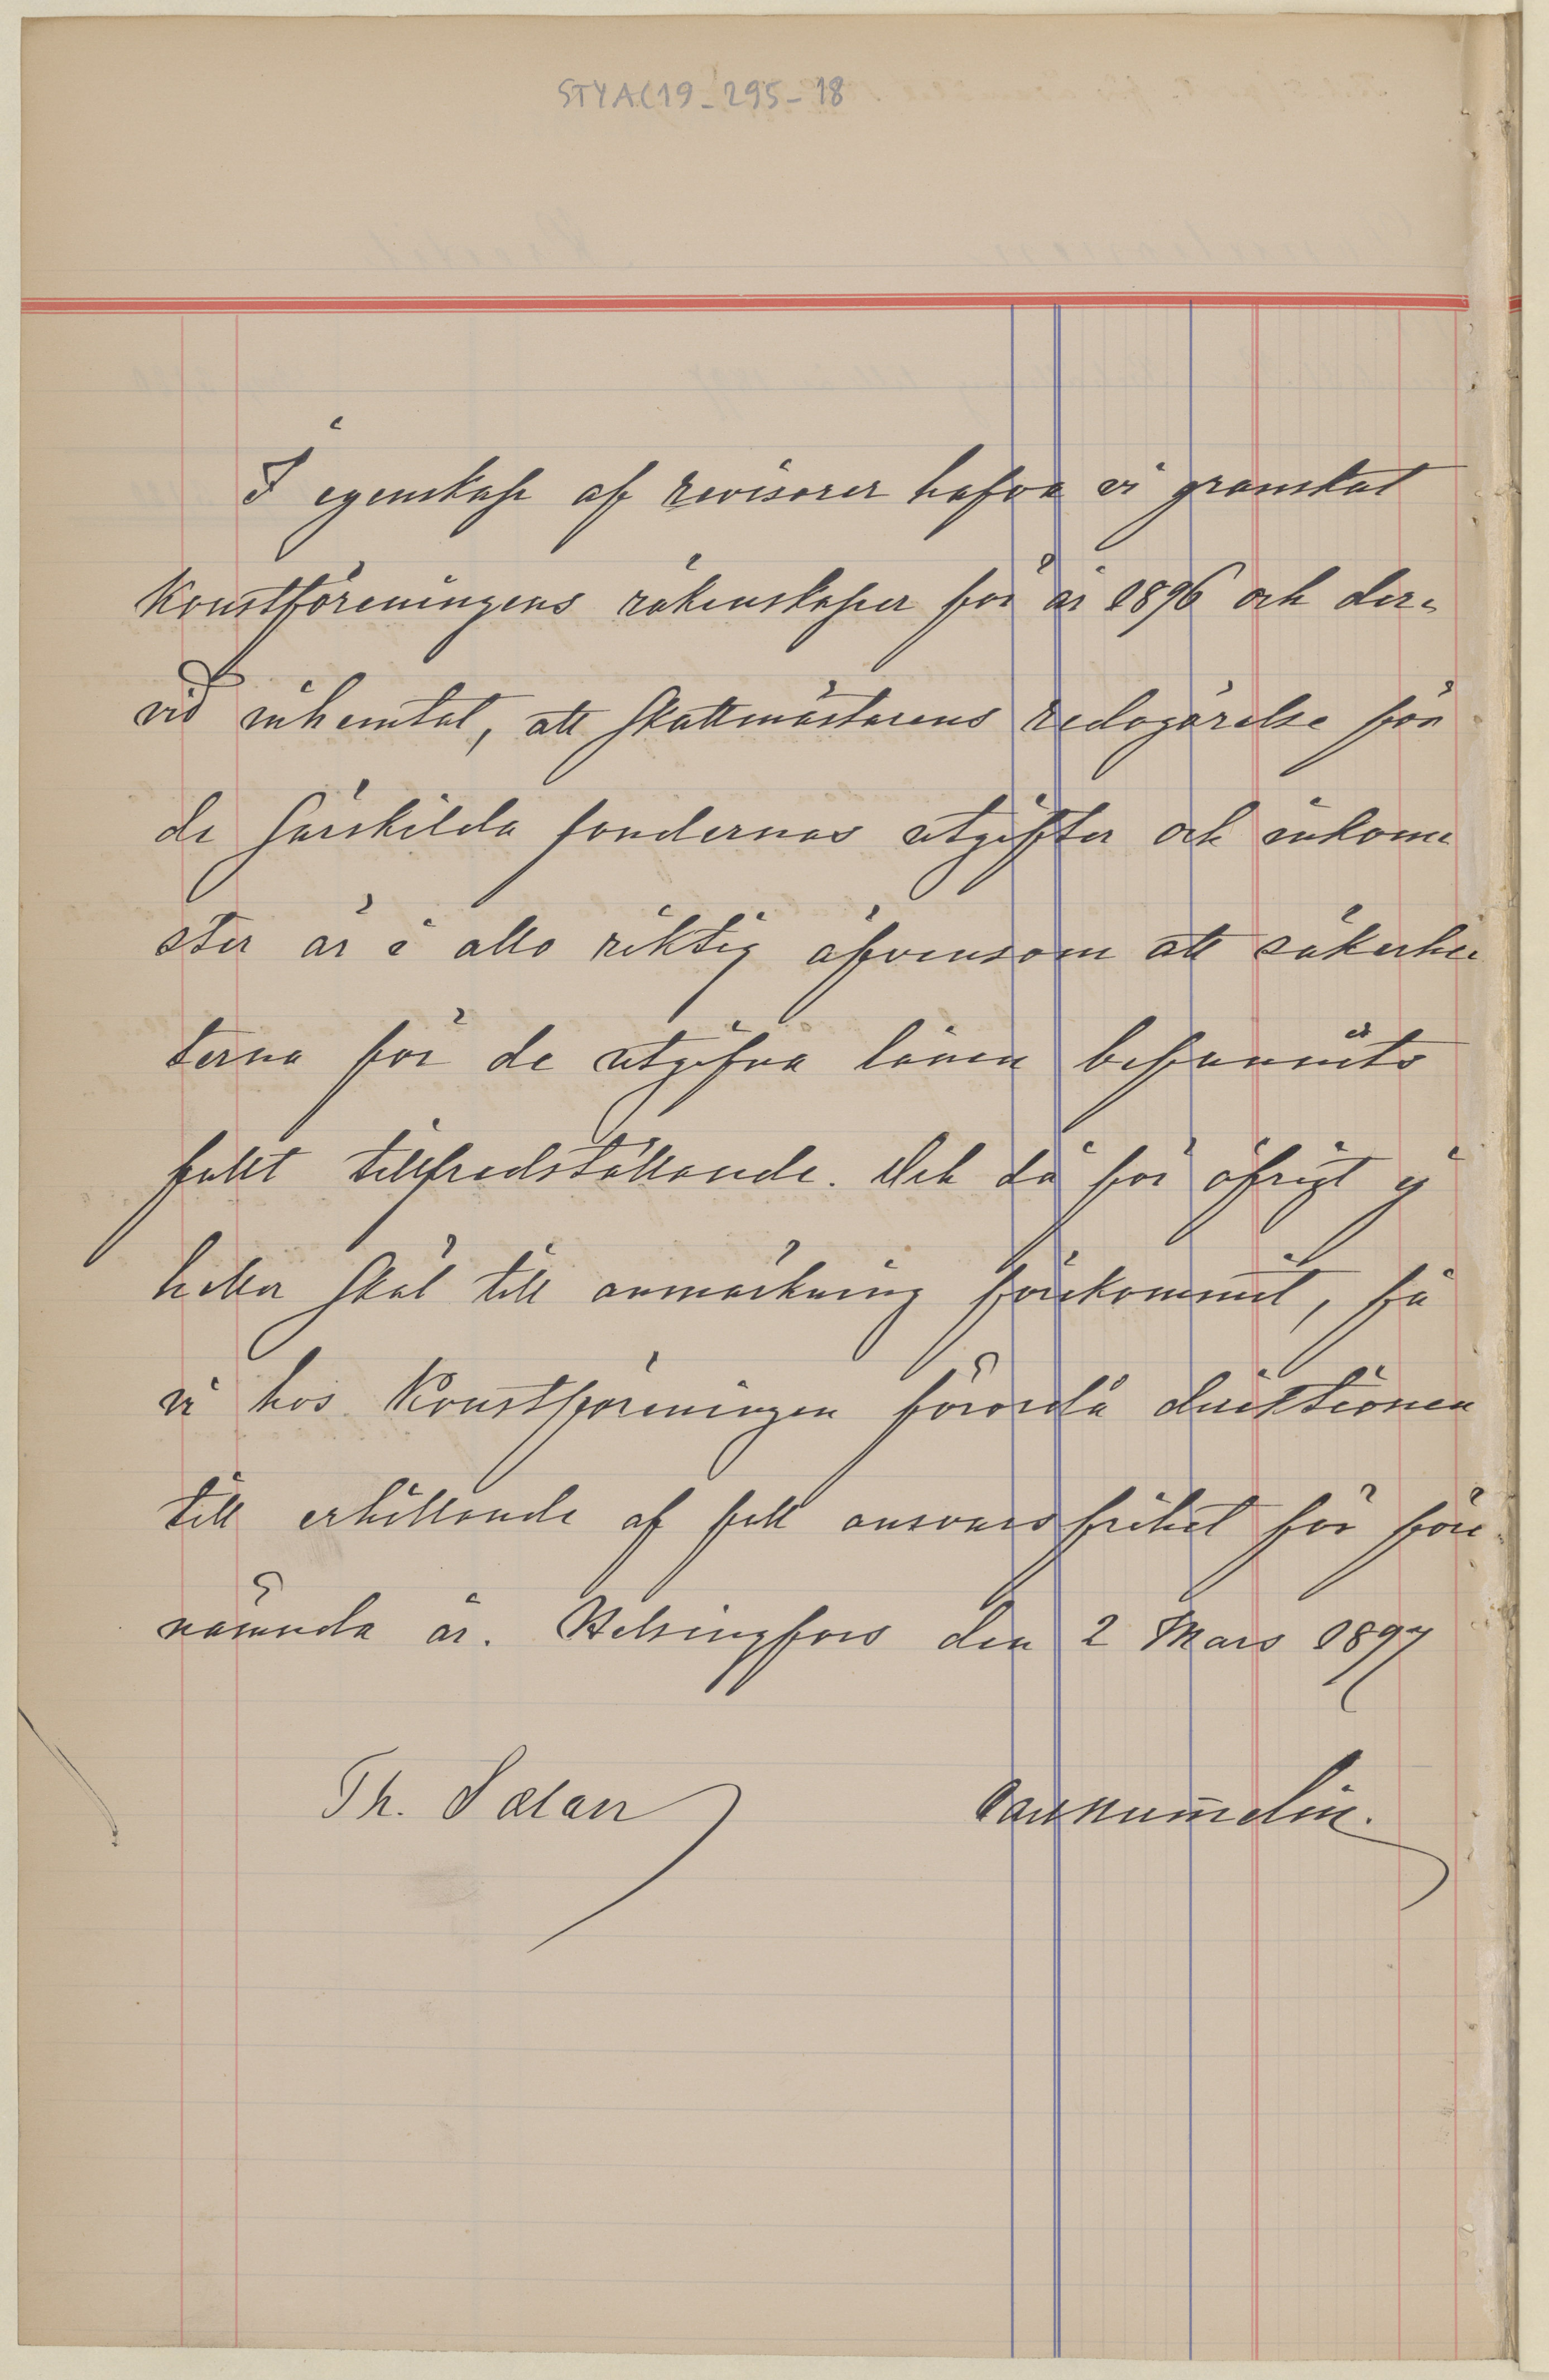 STYA(19-295-18
I egenskap af revisorer hafva vi granskat
Konstföreningens räkenskaper för år 1896 och der-
vid inhemtat, att Skattmästarens redogörelse för
de särskilda fondernas utgifter och inkom-
ster är i allo riktig äfvensom att säkerhe-
terna för de utgifna lånen befunnits
fullt tillfredställande. Och då för öfrigt ej
heller skäl till anmärkning förekommit, få
vi hos Konstföreningen förorda direktionen
till erhållande af full ansvarsfrihet för före-
nämnda år. Helsingfors den 2 Mars 1897
Th. Sælan